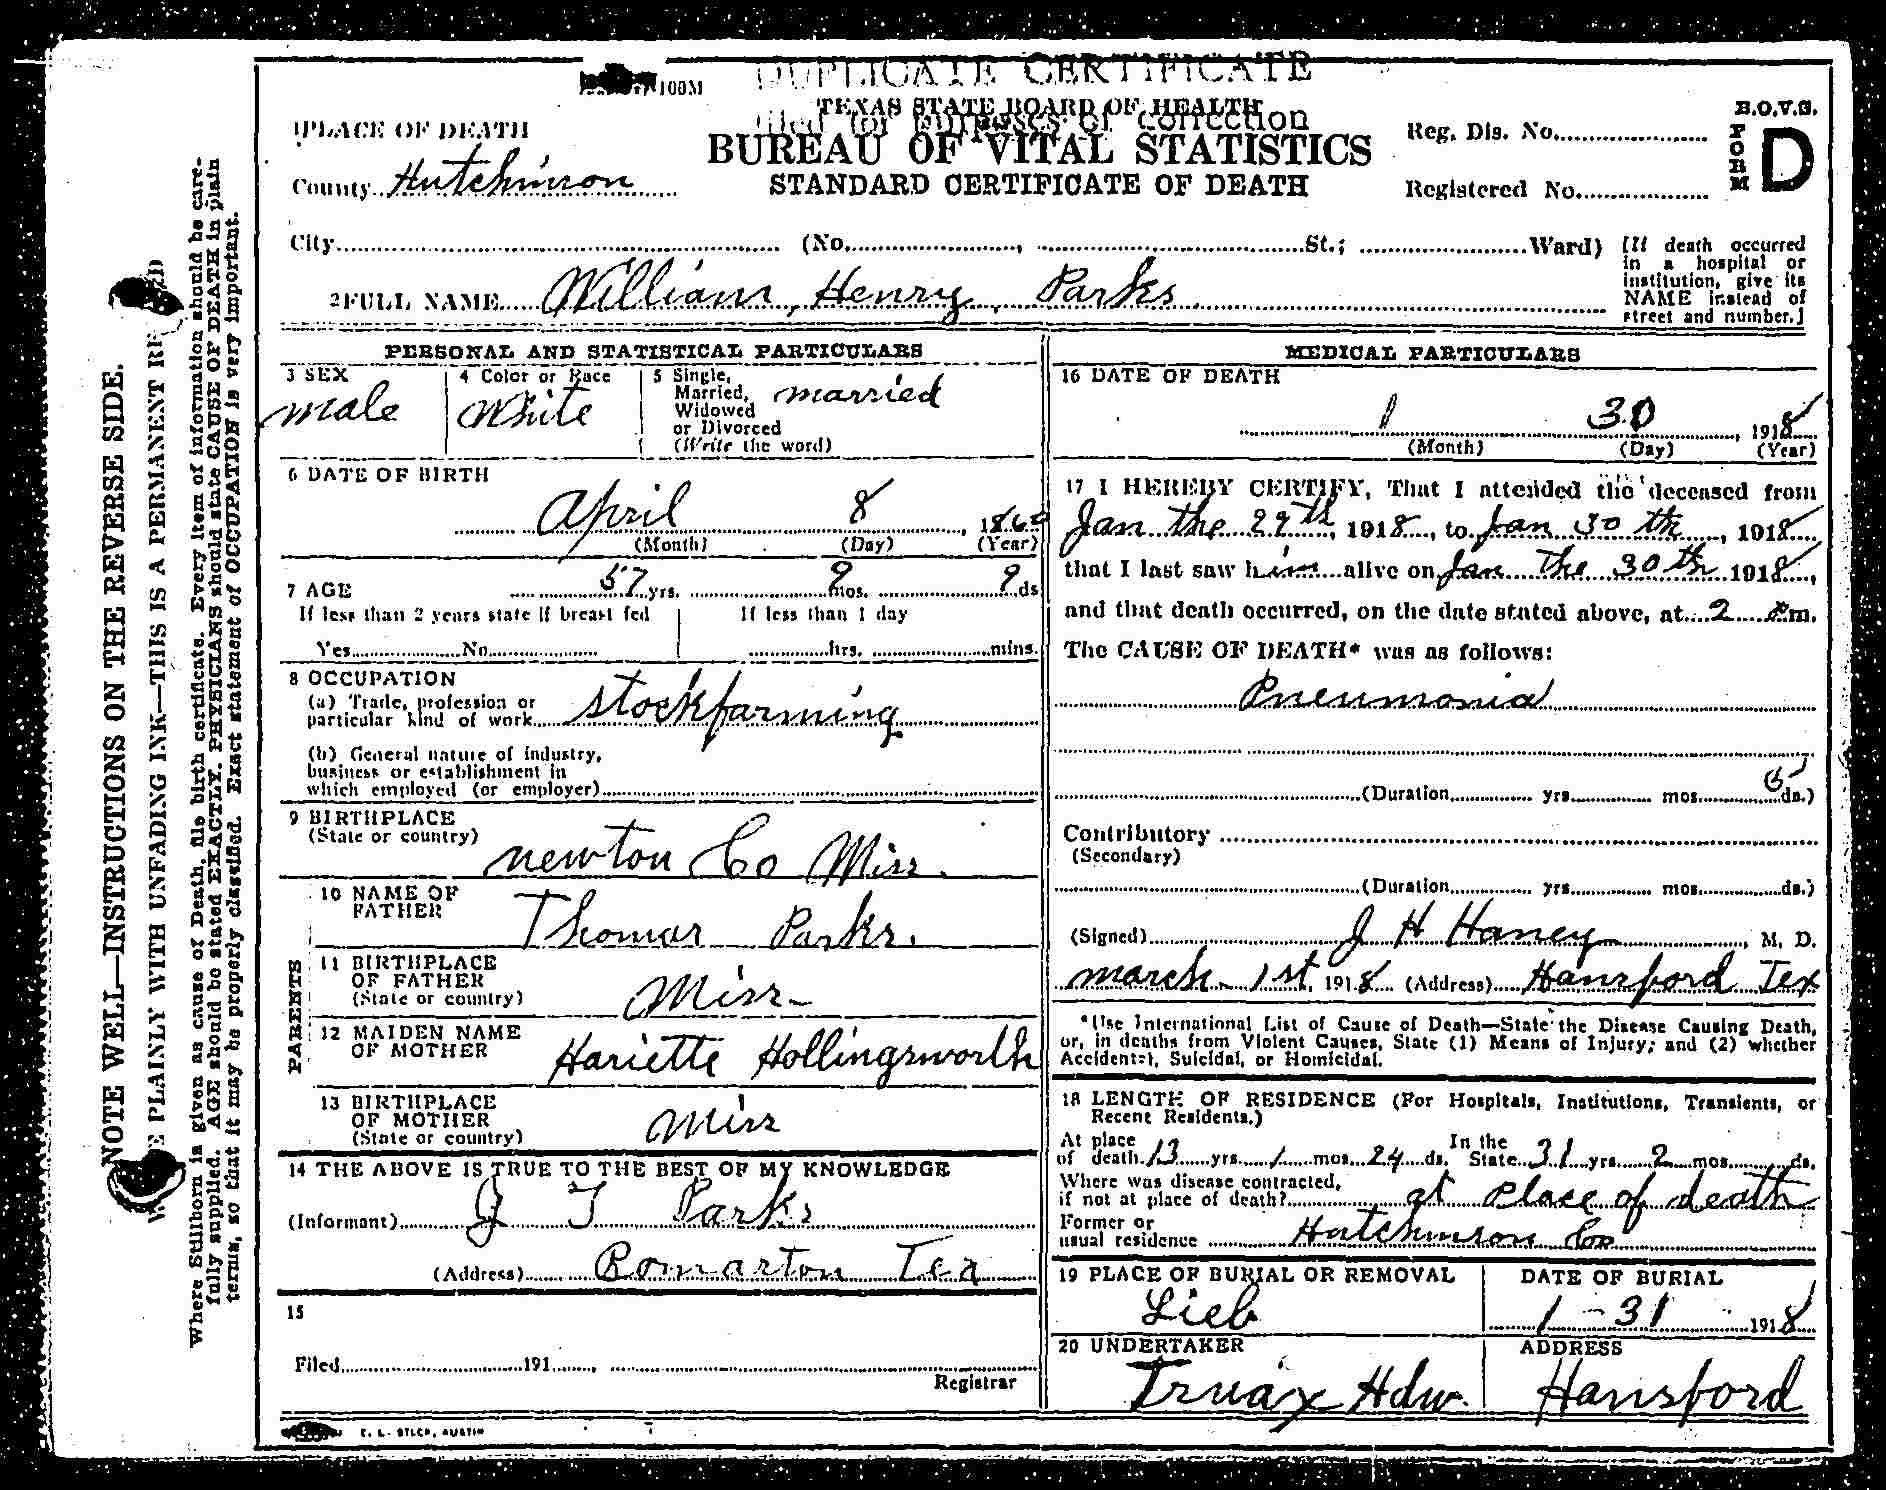 100M
DUPLICATE CERTIFICATE
TEXAS STATE BOARD OF HEALTH
filed for purposes of correction
BUREAU OF VITAL STATISTICS
STANDARD CERTIFICATE OF DEATH
1 PLACE OF DEATH
County Hutchinson
Reg. Dis. No.
Registered No.
B.O.V.S.
FORM D
City (No. , St.; Ward)
[If death occurred
in a hospital or
institution, give its
NAME instead of
street and number.]
2 FULL NAME William Henry Parks
PERSONAL AND STATISTICAL PARTICULARS
3 SEX
male
4 Color or Race
White
5 Single,
Married,
Widowed
or Divorced
(Write the word)
married
6 DATE OF BIRTH
April 8, 1860
(Month) (Day) (Year)
7 AGE 57 yrs. 9 mos. 9 ds
If less than 2 years state if breast fed
Yes No
If less than 1 day
hrs. mins.
8 OCCUPATION
(a) Trade, profession or
particular kind of work stockfarming
(b) General nature of industry,
business or establishment in
which employed (or employer)
9 BIRTHPLACE
(State or country)
newton Co Miss.
PARENTS
10 NAME OF
FATHER
Thomas Parks.
11 BIRTHPLACE
OF FATHER
(State or country)
Miss
12 MAIDEN NAME
OF MOTHER
Hariette Hollingsworth
13 BIRTHPLACE
OF MOTHER
(State or country)
Miss
14 THE ABOVE IS TRUE TO THE BEST OF MY KNOWLEDGE
(Informant) J T Parks
(Address) Tex
15
Filed 191 ,
Registrar
MEDICAL PARTICULARS
16 DATE OF DEATH
1 30, 1918
(Month) (Day) (Year)
17 I HEREBY CERTIFY, That I attended the deceased from
Jan the 29th, 1918, to Jan 30 th, 1918
that I last saw him alive on Jan the 30th 1918,
and that death occurred, on the date stated above, at 2 m.
The CAUSE OF DEATH* was as follows:
Pneumonia
(Duration yrs. mos. ds.)
Contributory
(Secondary)
(Duration yrs. mos. ds.)
(Signed) J H Haney, M. D.
march 1st, 1918 (Address) Hansford Tex
*Use International List of Cause of Death—State the Disease Causing Death,
or, in deaths from Violent Causes, State (1) Means of Injury; and (2) whether
Accidental, Suicidal, or Homicidal.
18 LENGTH OF RESIDENCE (For Hospitals, Institutions, Transients, or
Recent Residents.)
At place
of death 13 yrs. 1 mos. 24 ds.
In the
State 31 yrs. 2 mos. ds.
Where was disease contracted,
if not at place of death? at Place of death
Former or
usual residence Hutchinson Co
19 PLACE OF BURIAL OR REMOVAL
Lieb
DATE OF BURIAL
1-31 1918
20 UNDERTAKER
Truax Hdw.
ADDRESS
Hansford
E. L. STECK, AUSTIN
NOTE WELL—INSTRUCTIONS ON THE REVERSE SIDE.
PLAINLY WITH UNFADING INK—THIS IS A PERMANENT
Where Stillborn is given as cause of Death, file birth certificate. Every item of information should be care-
fully supplied. AGE should be stated EXACTLY. PHYSICIANS should state CAUSE OF DEATH in plain
terms, so that it may be properly classified. Exact statement of OCCUPATION is very important.